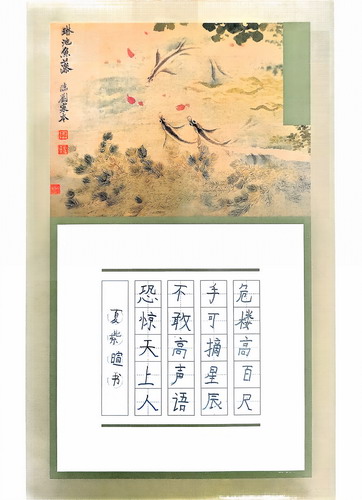 琳池魚藻
臨劉寀本
危楼高百尺
手可摘星辰
不敢高声语
恐惊天上人
夏紫暄书